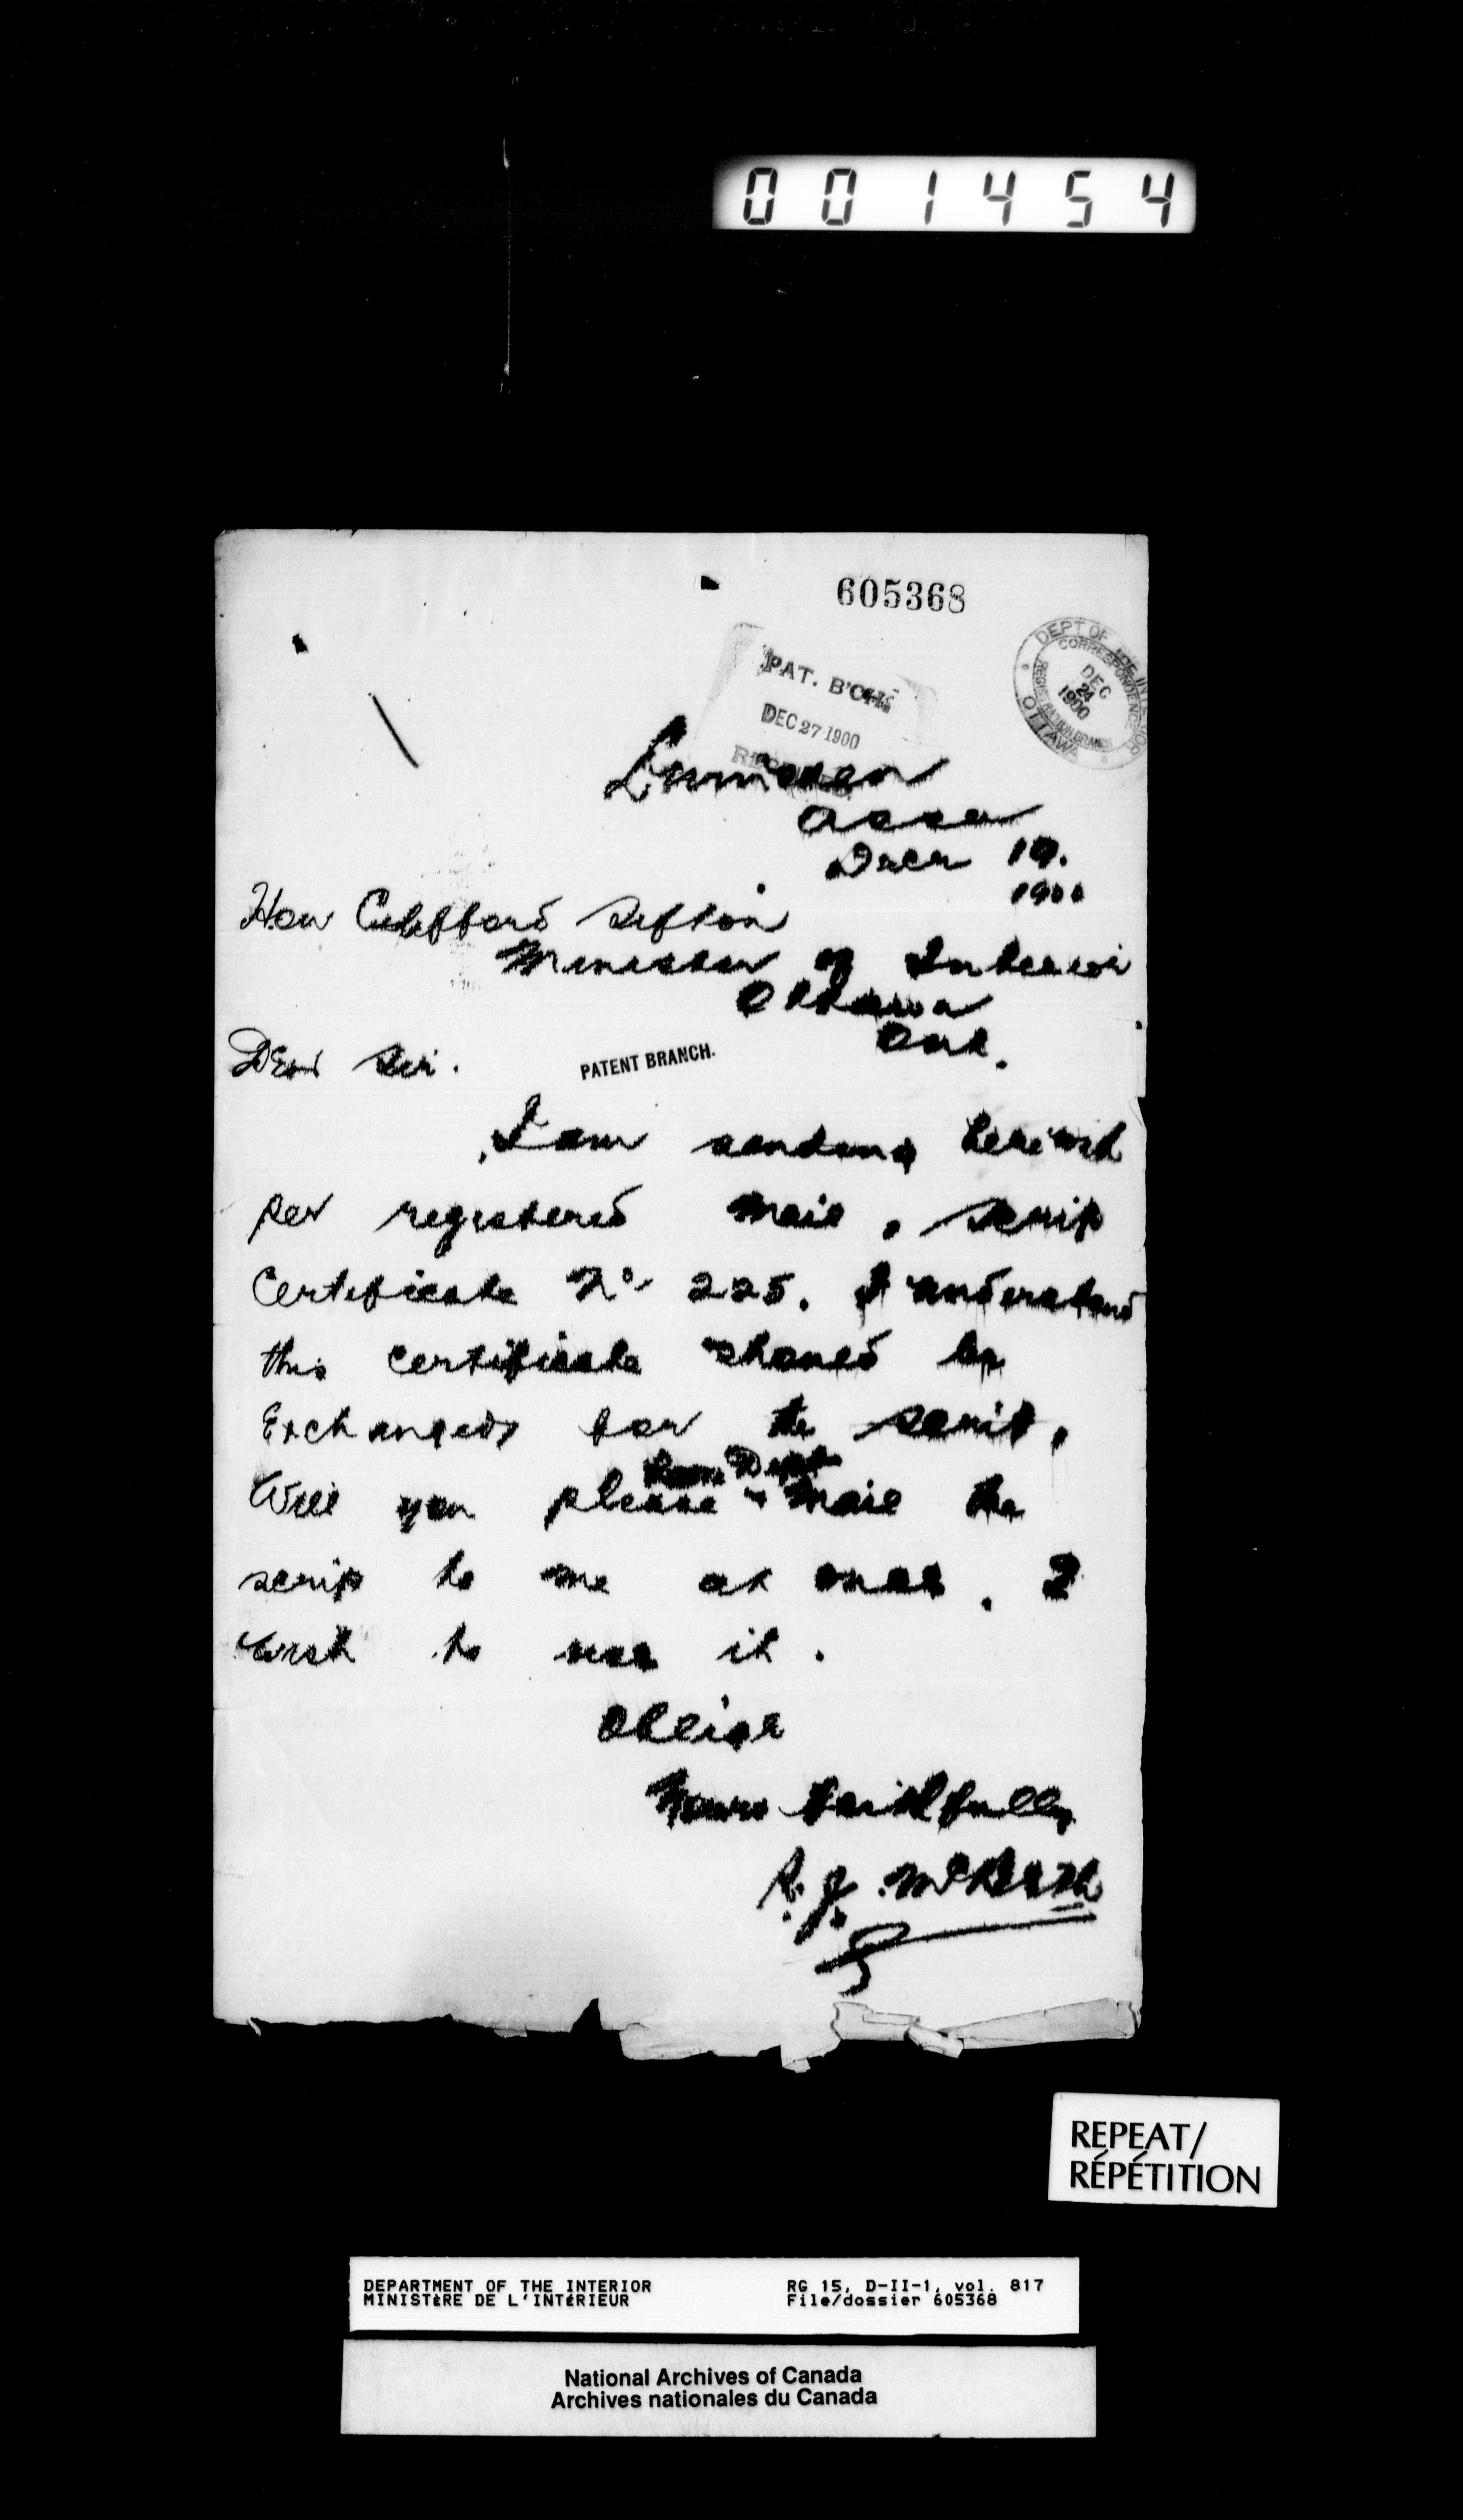 001454
605368
DEPT OF THE INTERIOR
CORRESPONDENCE
REGISTRATION BRANCH
DEC
24
1900
OTTAWA
PAT. B'CH
DEC 27 1900
Lumsden
Assa
Decr 19.
1900
Hon Clifford Sifton
Minister of Interior
Ottawa
Ont.
Dear Sir.
PATENT BRANCH.
I am sending herewith
per registered mail, scrip
Certificate No 225. I understand
this certificate should be
Exchanged for the scrip,
Dept
Will you please mail the
scrip to me at once. I
wish to use it.
Oblige
Yours faithfully
R. J. McBeth
REPEAT/
RÉPÉTITION
DEPARTMENT OF THE INTERIOR RG 15, D-II-1, vol. 817
MINISTÈRE DE L'INTÉRIEUR File/dossier 605368
National Archives of Canada
Archives nationales du Canada